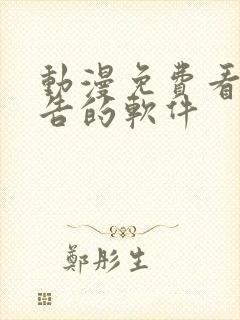 動漫免費看
告的軟件
鄭彤生